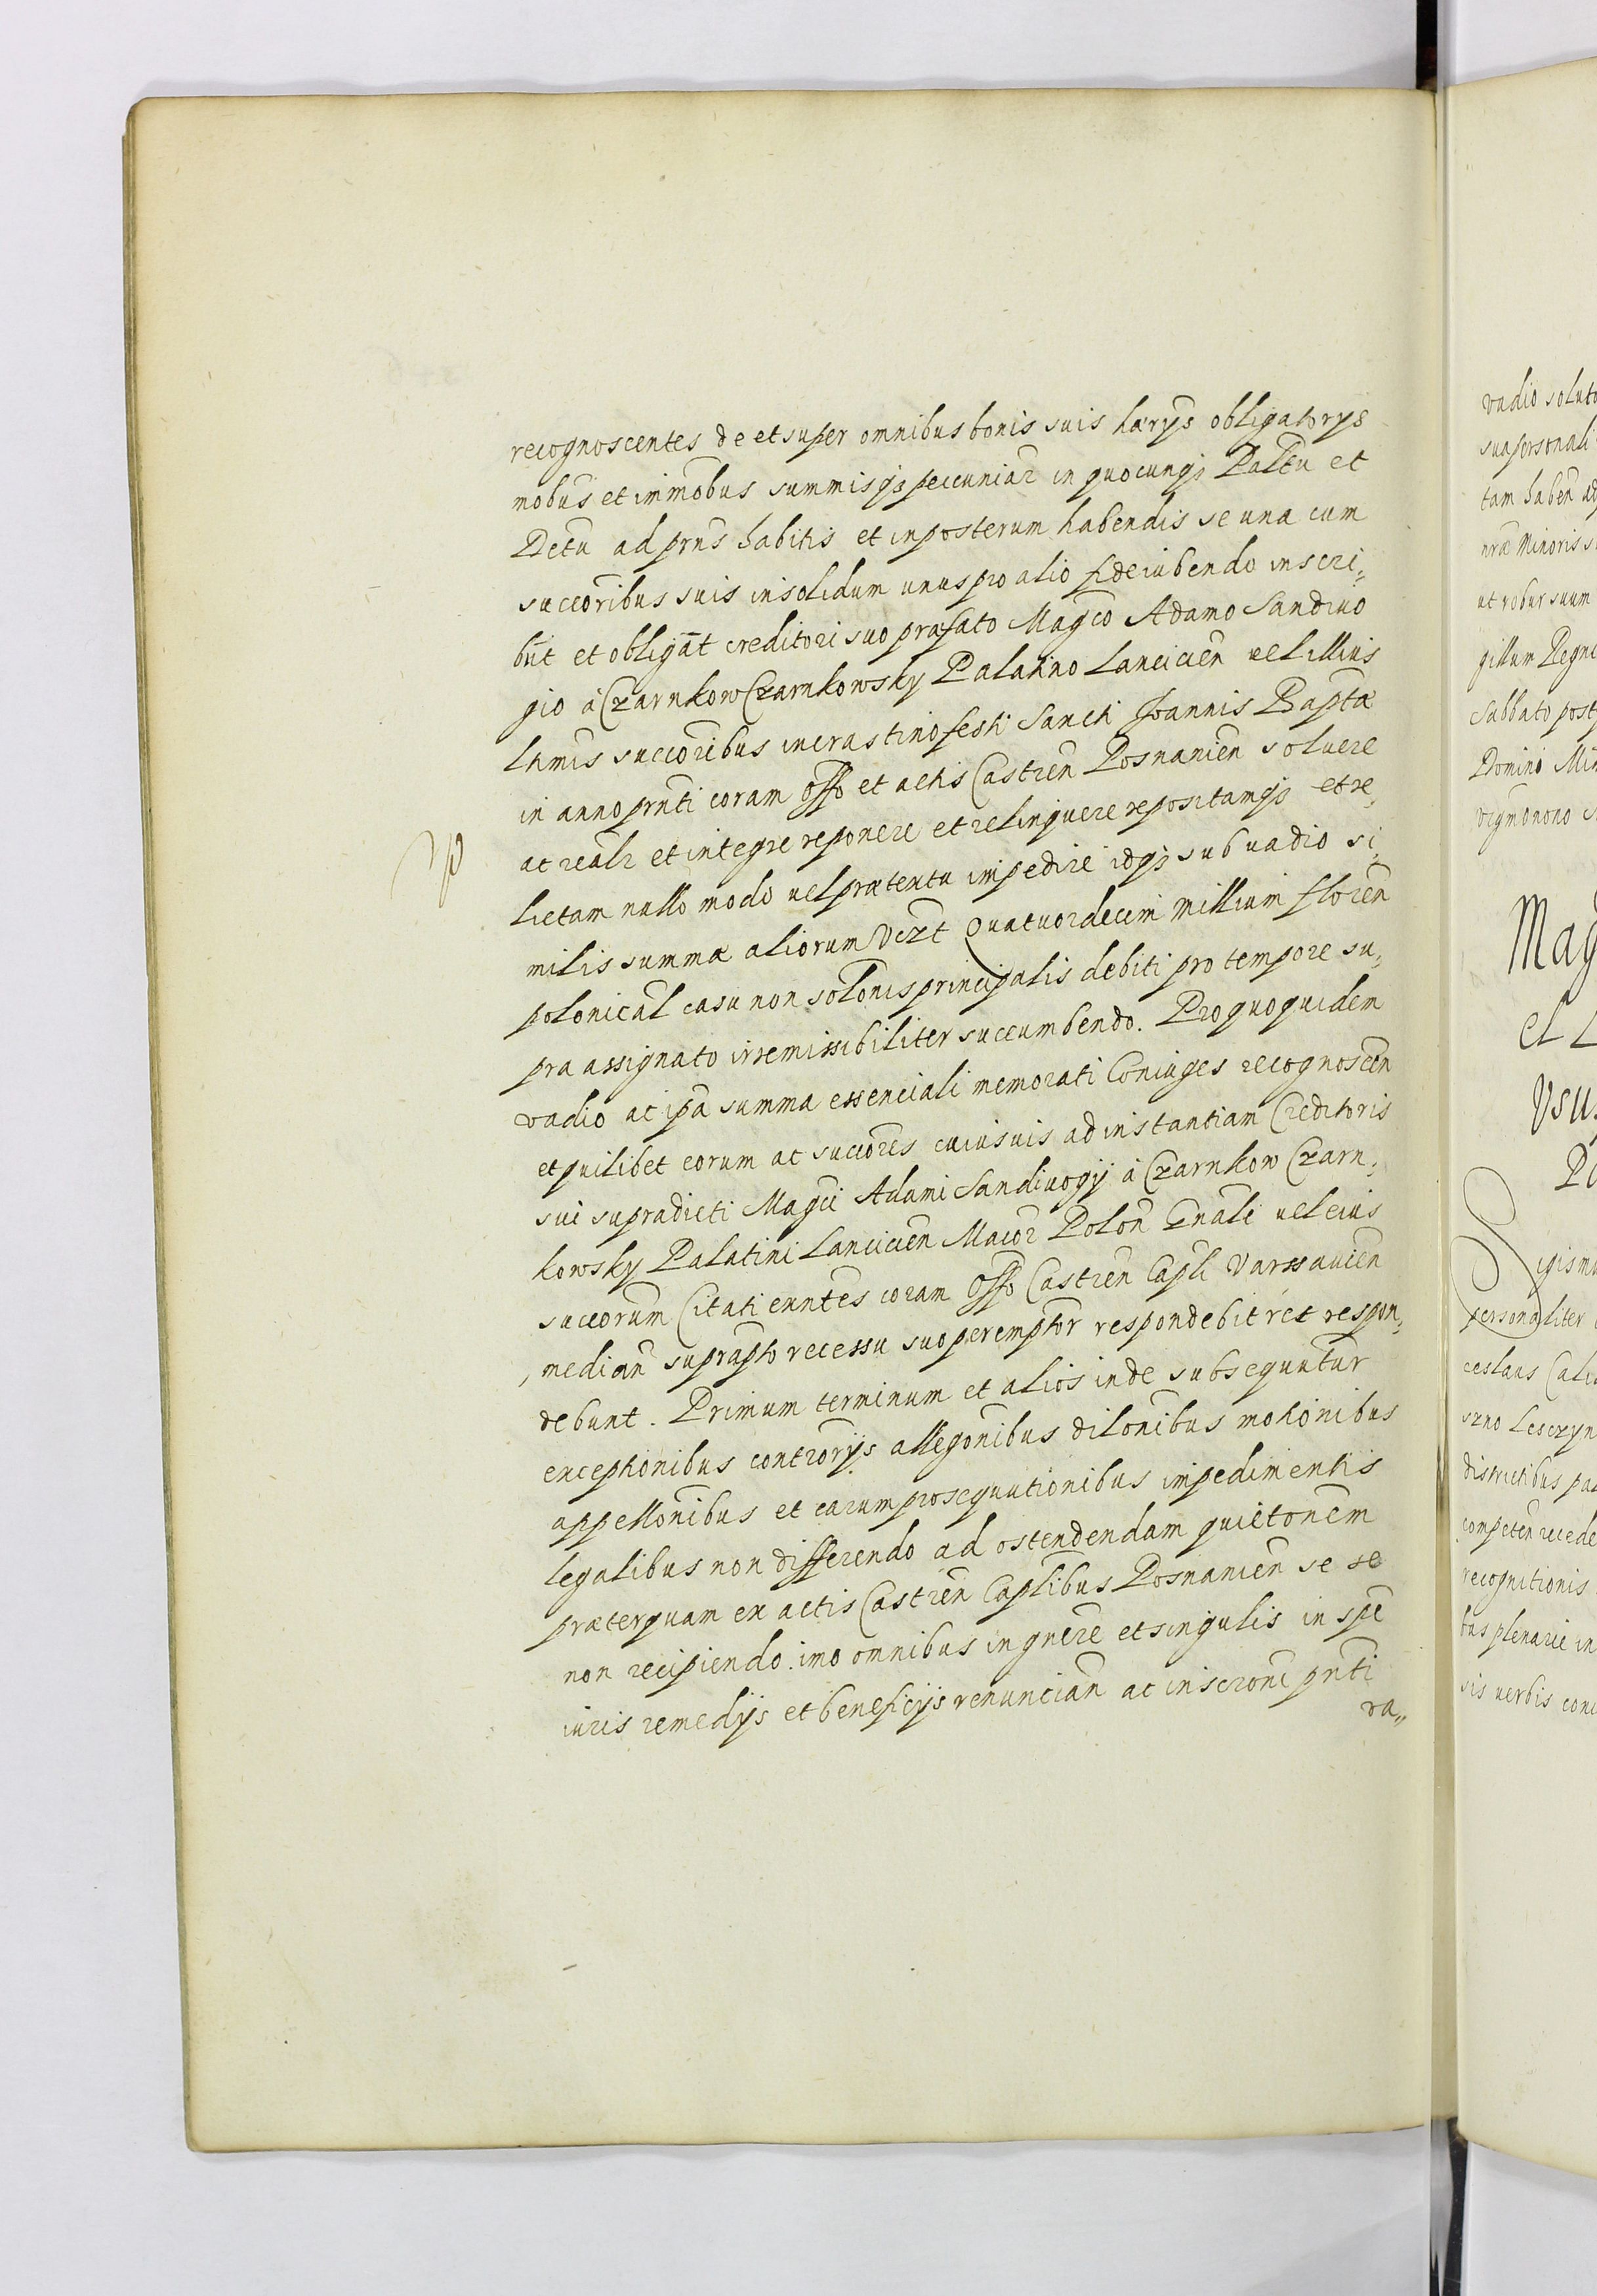 recognoscentes de et super omnibus bonis suis hærys obligatorys
mobus et immobus summisqȝ pecuniar in quocunqȝ Paltu et
Dctu ad prns habitis et inposterum habendis se una cum
succoribus suis insolidum unus pro alio fideiubendo inscri„
bnt et obligat creditori suo præfato Magco Adamo Sandivo
gio à Czarnkow Czarnkowsky Palatino Lancicien vel illius
ltimis succoribus in crastino festi Sancti Joannis Baptæ
in anno prnti coram Offo et actis Castren Posnanien soluere
ac realr et integre reponere et relinquere repositamqȝ et re„
lictam nullo modo vel prætextu impedire idqȝ sub vadio si„
milis summæ aliorum Vczt Quatuordecim millium floren
polonical casu non solonis principalis debiti pro tempore su„
pra assignato irremissibiliter succumbendo. Pro quo quidem
vadio ac ipa summa essenciali memorati Coniuges recognoscen
et quilibet eorum ac succores cuiusvis ad instantiam Creditoris
sui supradicti Magci Adami Sandivogij à Czarnkow Czarn„
kowsky Palatini Lancicien Maior Polon Gnali vel eius
succorum Citati exntes coram Offo Castren Capli Varssavien
median suprapto recessu suo peremptor respondebit ret respon„
debunt. Primum terminum et alios inde subsequntur
exceptionibus controrijs allegonibus dilonibus motionibus
appellonibus et earum prosequutionibus impedimentis
legalibus non differendo ad ostendendam quietonem
præterquam ex actis Castren Caplibus Posnanien se se
non recipiendo. imo omnibus in gnere et singulis in spe
iuris remedijs et beneficijs renuncian ac inscrone pnti
va„
vadio soluto
sua personali
tam haben
nræ Minoris
ut robur suum
gillum Regni
Sabbato post
Domini
Mag
et
Vsu
Sigism
personaliter
ceslaus
districtibus
competen recede
recognitionis
bus plenarie in
sis verbis